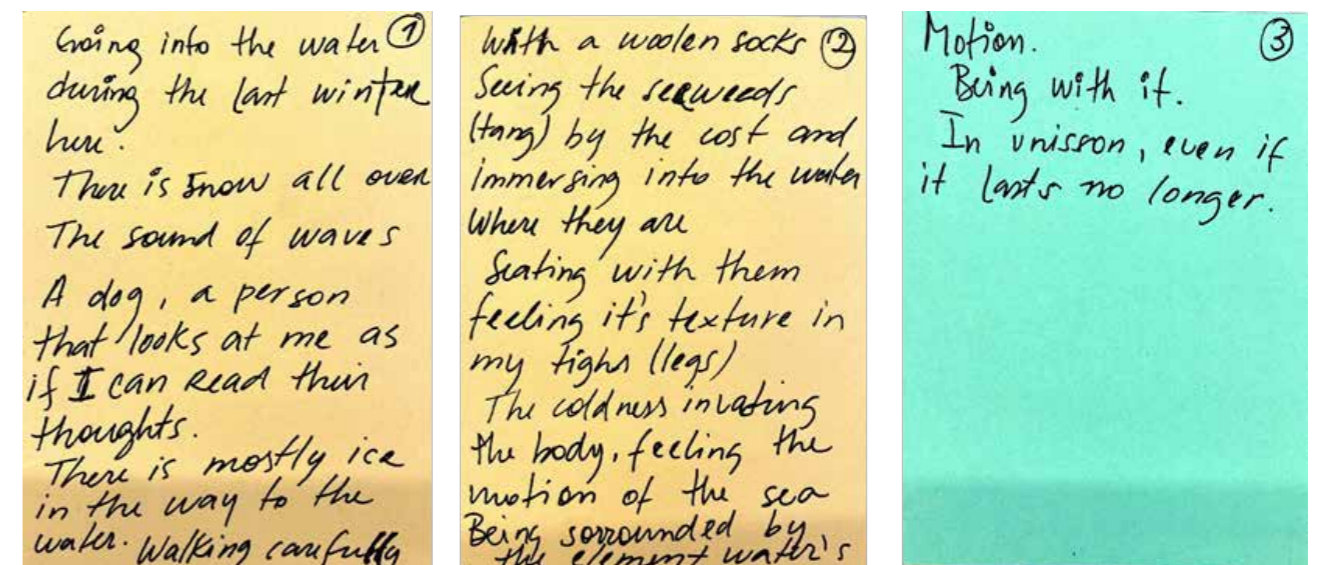 1
Going into the water
during the last winter
here.
There is snow all over
The sound of waves
A dog, a person
that looks at me as
if I can read their
thoughts.
There is mostly ice
in the way to the
water. Walking carefully
2
With a woolen socks
Seeing the seaweeds
(tang) by the cost and
immersing into the water
Where they are
Seating with them
feeling it's texture in
my tighs (legs)
The coldness invating
the body, feeling the
motion of the sea
Being sorrounded by
the element water's
3
Motion.
Being with it.
In unisson, even if
it lasts no longer.